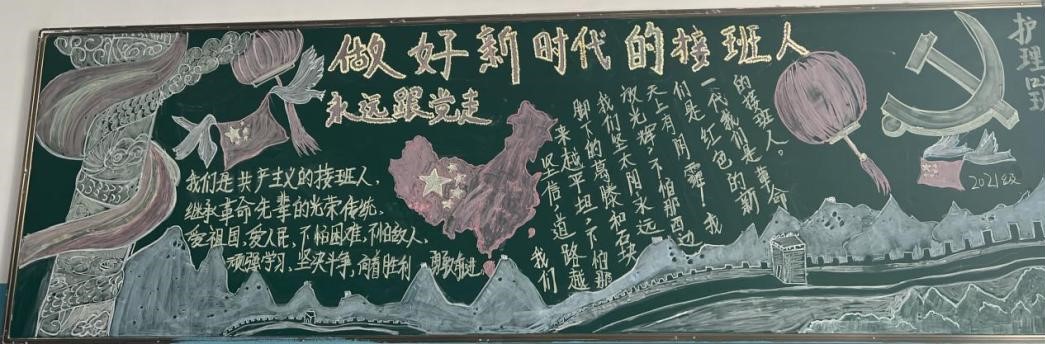 做好新时代的接班人
永远跟党走
护理
2021级
我们是共产主义的接班人，
继承革命先辈的光荣传统，
爱祖国，爱人民，不怕困难，不怕敌人，
顽强学习、坚决斗争、胜利 勇敢前进
我们
坚信，道路越
来越平坦，不怕那
脚下的葛藤和石块
我们坚太阳永远
放光辉，不怕那西边
天上有阴霾，我
们是红色的新
一代我们是革命
的接班人。